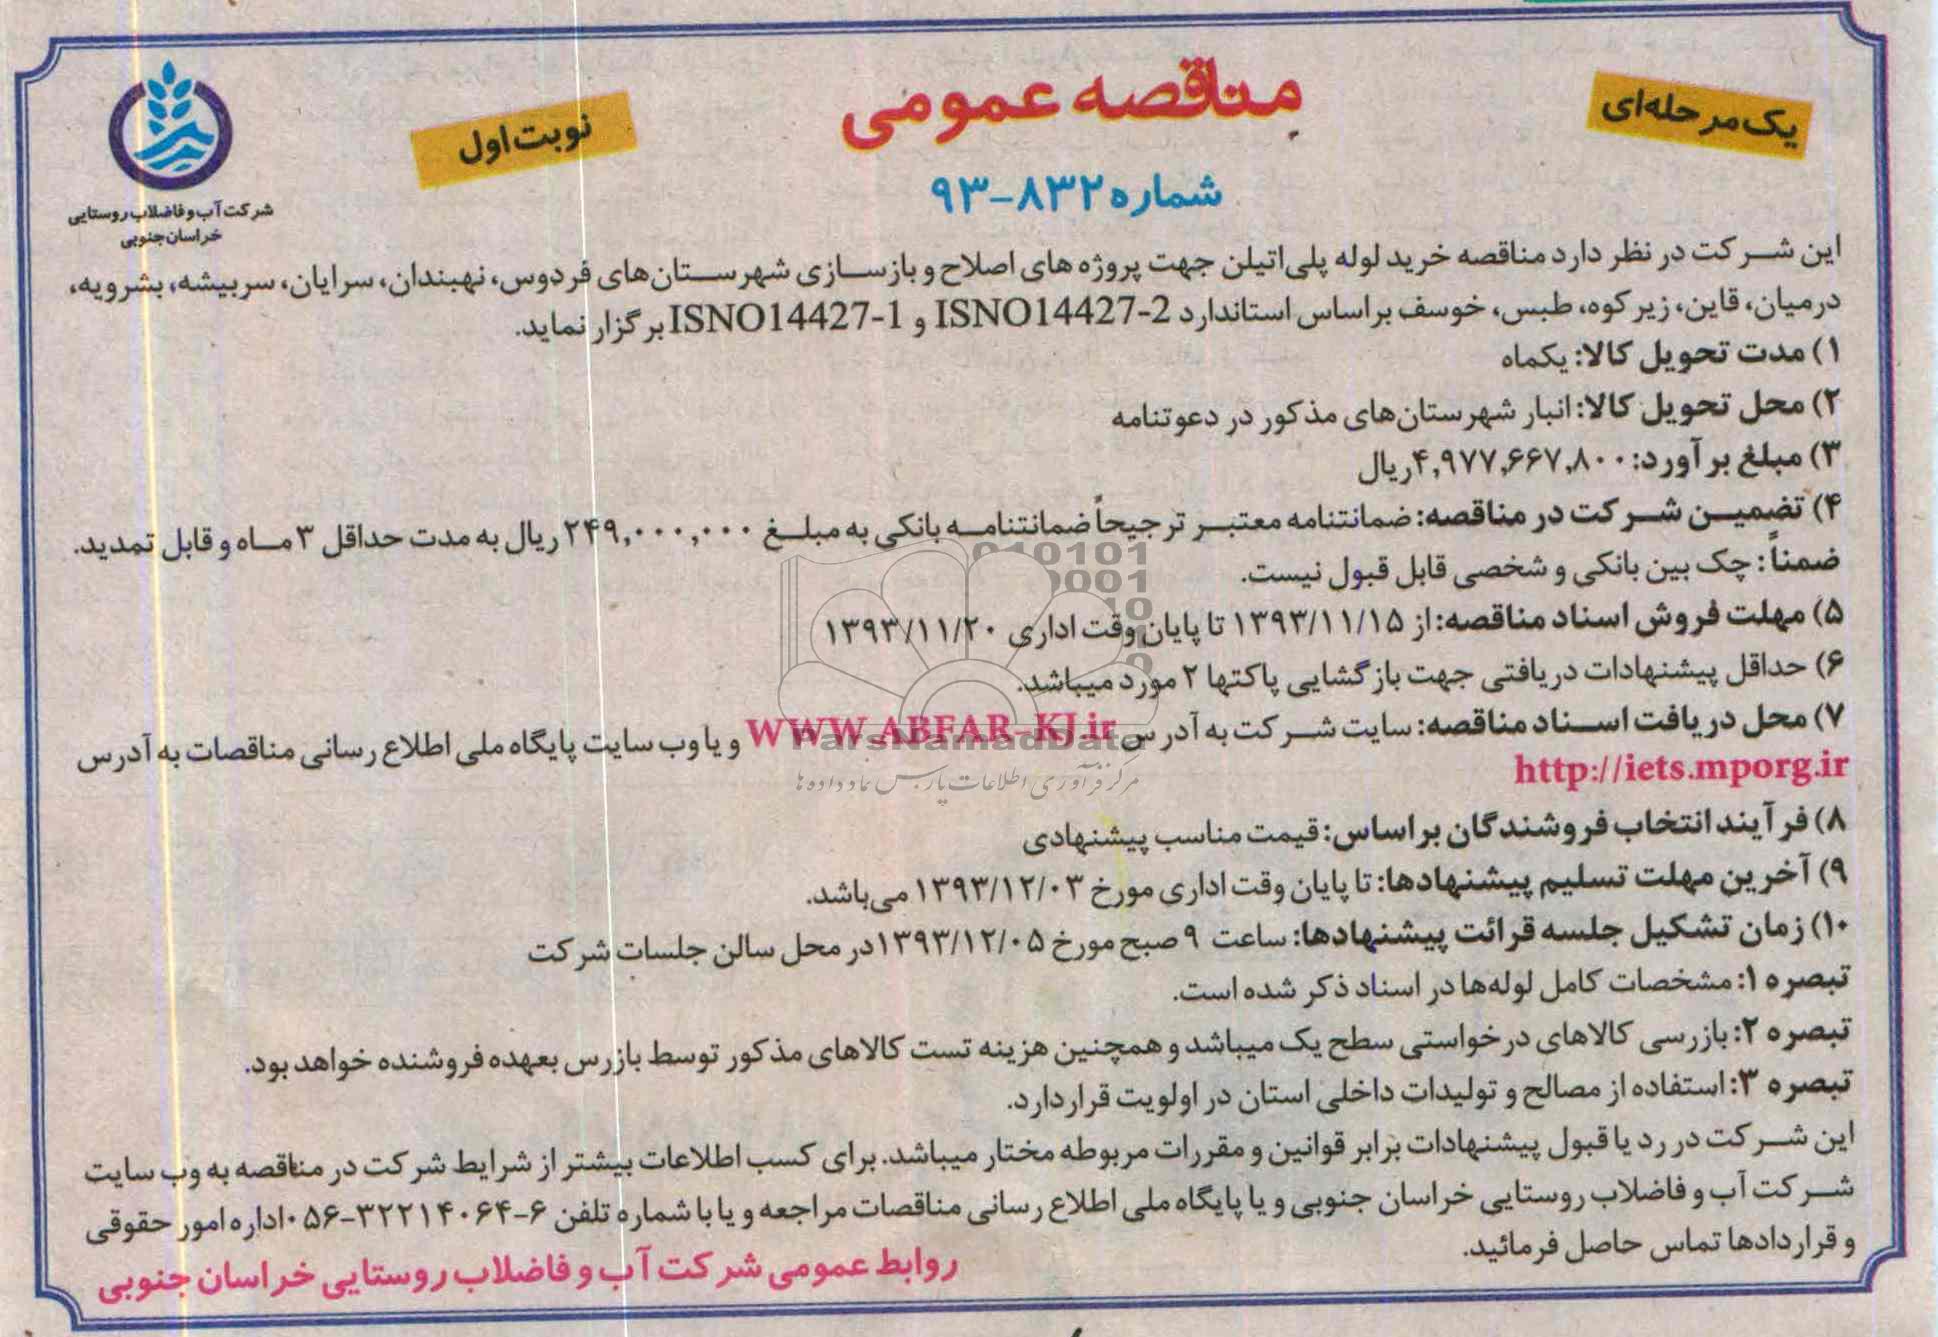 یک مرحله‌ای
مناقصه عمومی
نوبت اول
شماره ۸۳۲-۹۳
شرکت آب و فاضلاب روستایی
خراسان جنوبی
این شرکت در نظر دارد مناقصه خرید لوله پلی‌اتیلن جهت پروژه های اصلاح و بازسازی شهرستان‌های فردوس، نهبندان، سرایان، سربیشه، بشرویه،
درمیان، قاین، زیرکوه، طبس، خوسف براساس استاندارد ISNO14427-2 و ISNO14427-1 برگزار نماید.
۱) مدت تحویل کالا: یکماه
۲) محل تحویل کالا: انبار شهرستان‌های مذکور در دعوتنامه
۳) مبلغ برآورد: ۴,۹۷۷,۶۶۷,۸۰۰ریال
۴) تضمین شرکت در مناقصه: ضمانتنامه معتبر ترجیحاً ضمانتنامه بانکی به مبلغ ۲۴۹,۰۰۰,۰۰۰ ریال به مدت حداقل ۳ ماه و قابل تمدید.
ضمناً: چک بین بانکی و شخصی قابل قبول نیست.
۵) مهلت فروش اسناد مناقصه: از ۱۳۹۳/۱۱/۱۵ تا پایان وقت اداری ۱۳۹۳/۱۱/۲۰
۶) حداقل پیشنهادات دریافتی جهت بازگشایی پاکتها ۲ مورد میباشد.
۷) محل دریافت اسناد مناقصه: سایت شرکت به آدرس WWW.ABFAR-KJ.ir و یا وب سایت پایگاه ملی اطلاع رسانی مناقصات به آدرس
http://iets.mporg.ir
۸) فرآیند انتخاب فروشندگان براساس: قیمت مناسب پیشنهادی
۹) آخرین مهلت تسلیم پیشنهادها: تا پایان وقت اداری مورخ ۱۳۹۳/۱۲/۰۳ می‌باشد.
۱۰) زمان تشکیل جلسه قرائت پیشنهادها: ساعت ۹ صبح مورخ ۱۳۹۳/۱۲/۰۵در محل سالن جلسات شرکت
تبصره ۱: مشخصات کامل لوله‌ها در اسناد ذکر شده است.
تبصره ۲: بازرسی کالاهای درخواستی سطح یک میباشد و همچنین هزینه تست کالاهای مذکور توسط بازرس بعهده فروشنده خواهد بود.
تبصره ۳: استفاده از مصالح و تولیدات داخلی استان در اولویت قراردارد.
این شرکت در رد یا قبول پیشنهادات برابر قوانین و مقررات مربوطه مختار میباشد. برای کسب اطلاعات بیشتر از شرایط شرکت در مناقصه به وب سایت
شرکت آب و فاضلاب روستایی خراسان جنوبی و یا پایگاه ملی اطلاع رسانی مناقصات مراجعه و یا با شماره تلفن ۶-۳۲۲۱۴۰۶۴-۰۵۶اداره امور حقوقی
و قراردادها تماس حاصل فرمائید.
روابط عمومی شرکت آب و فاضلاب روستایی خراسان جنوبی
ParsNamadData
مرکز فرآوری اطلاعات پارس نماد داده ها